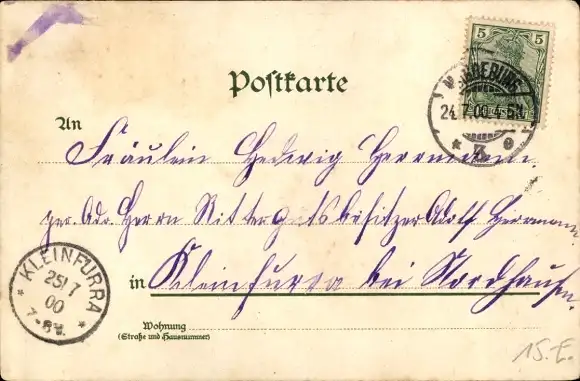 Postkarte
5 5
MAGDEBURG
24.7.00.4-5N
* 3 e
An
Fräulein Hedwig Herrmann
per. Adr. Herrn Rittergutsbesitzer Adolf Herrmann
in Kleinfurra bei Nordhausen.
KLEINFURRA
25/7
00
7-8V.
Wohnung
(Straße und Hausnummer)
15.E.